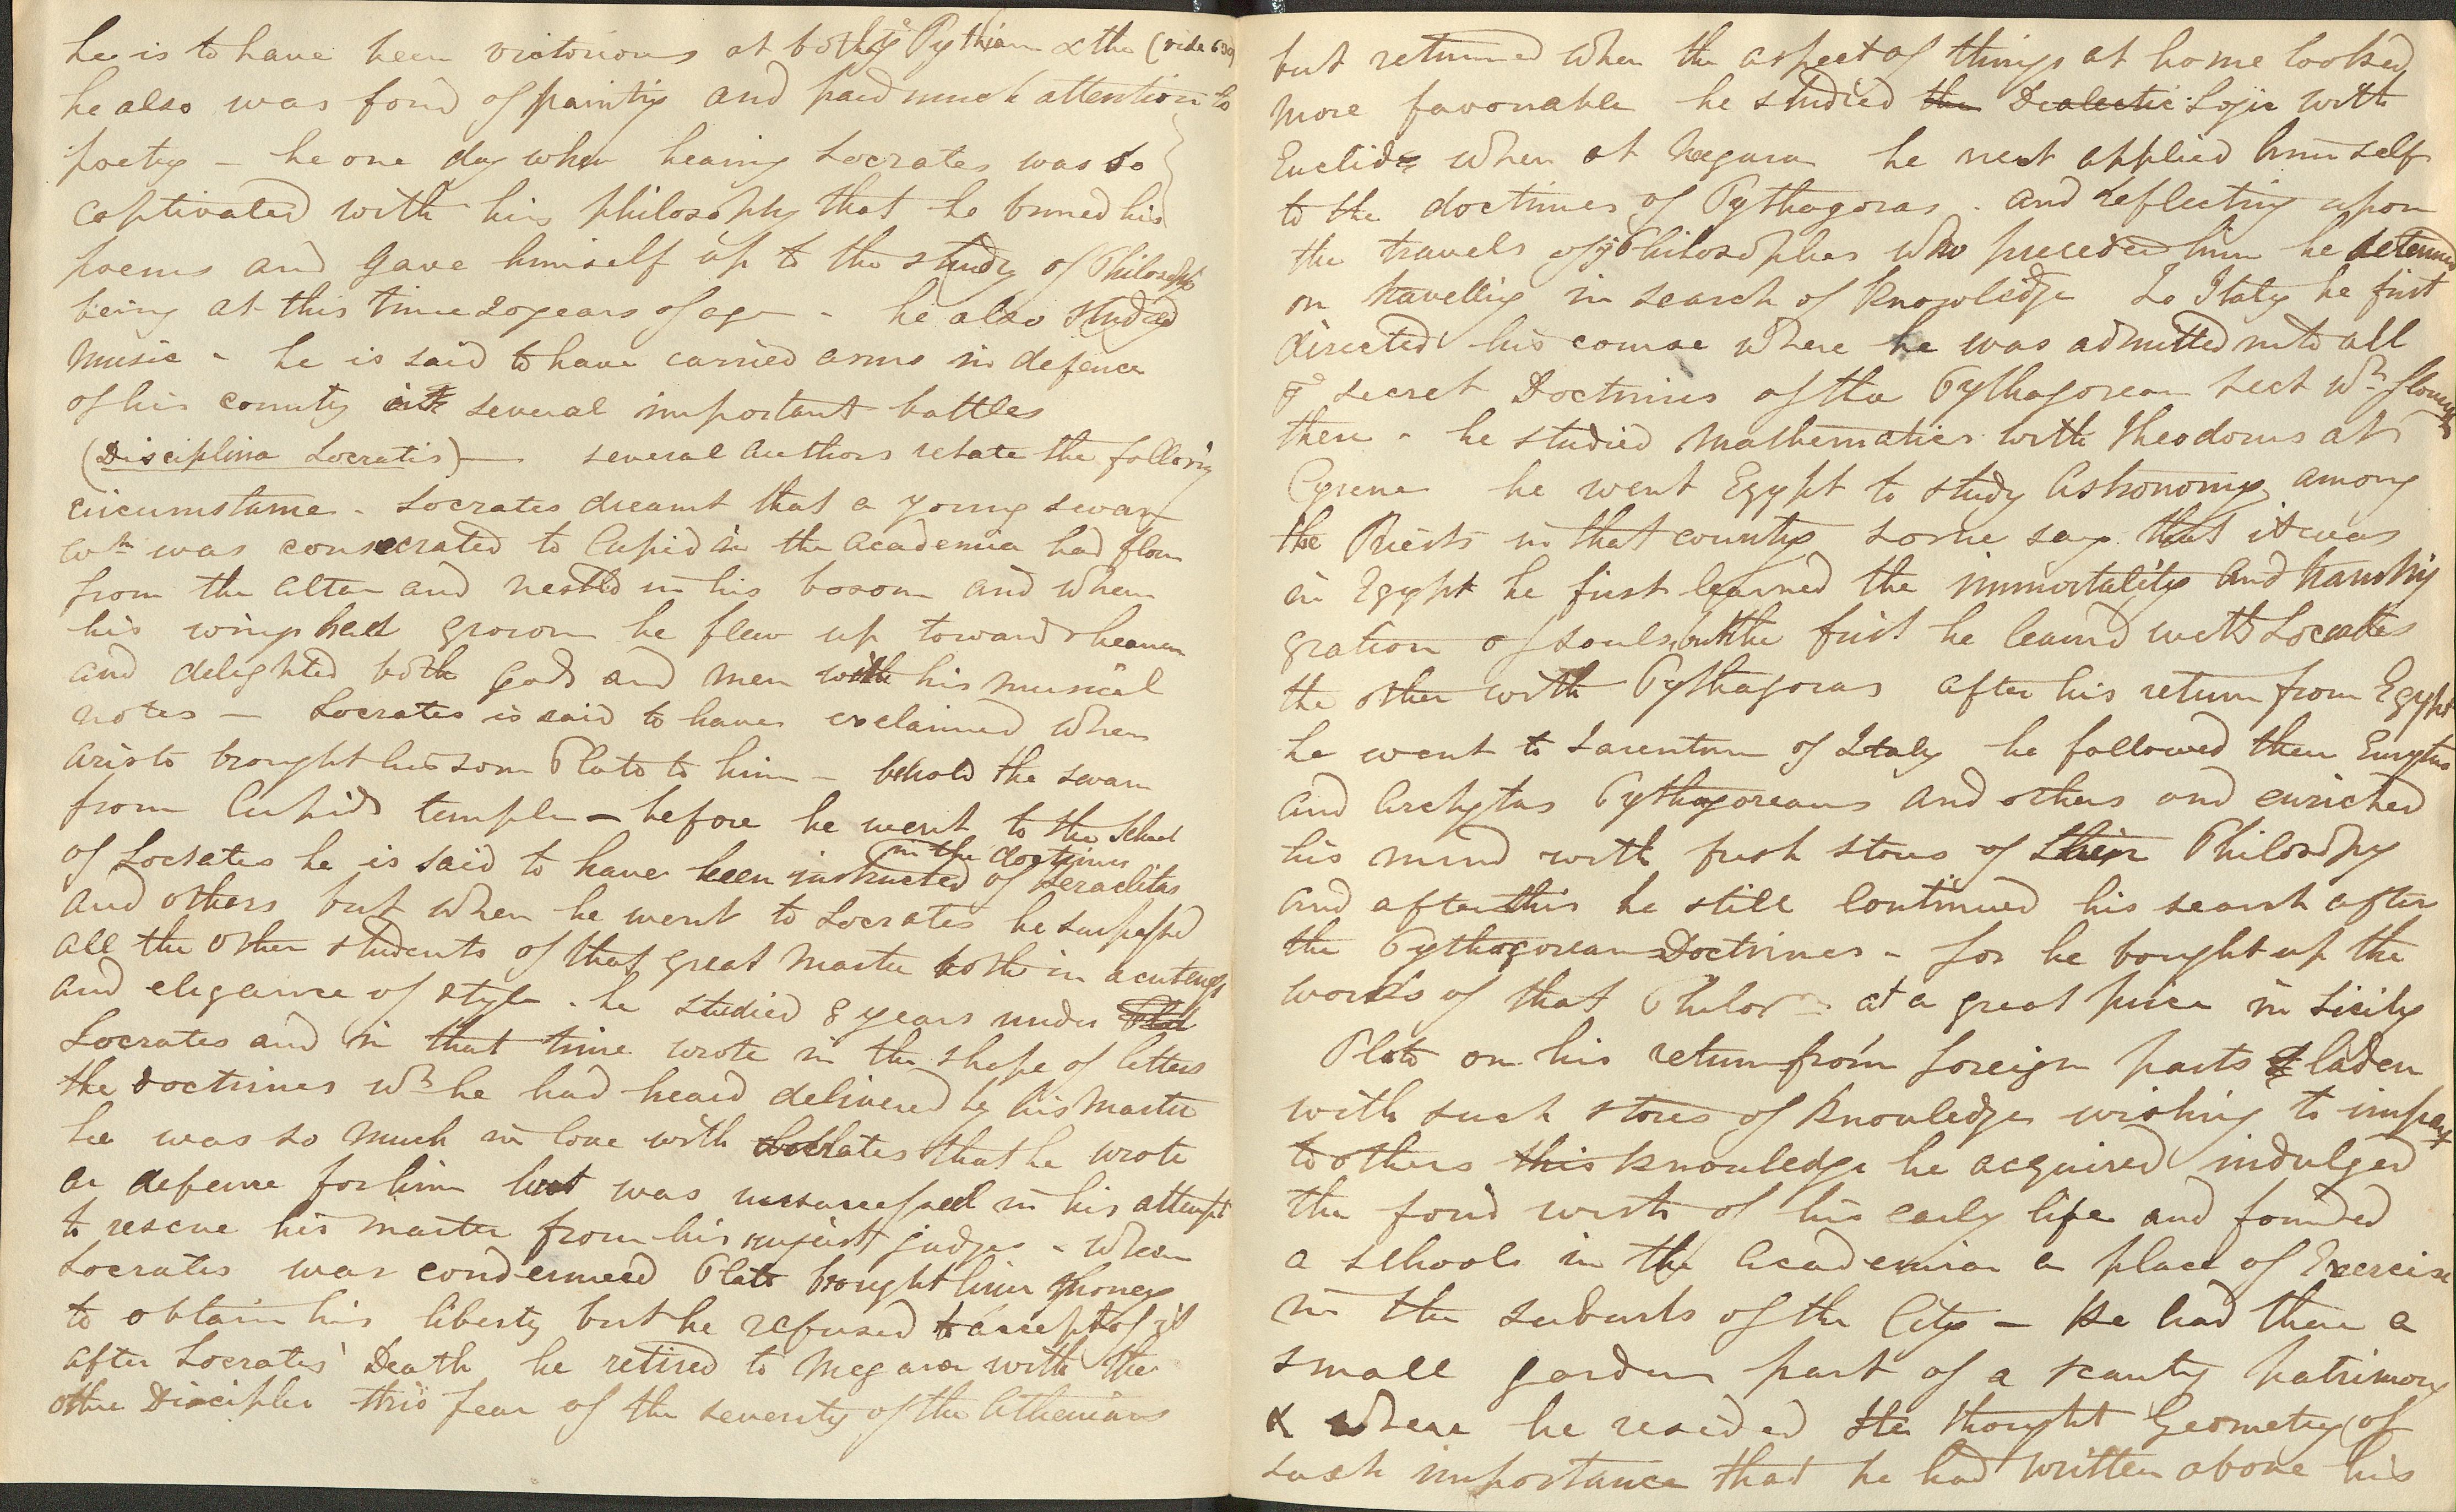 he is to have been victorious at both ye Pythian & the (vide 630
he also was fond of painting and paid much attention to
poetry – he one day when hearing Socrates was so
captivated with his philosophy that he burned his
poems and gave himself up to the study of Philosophy
being at this time 20 years of age – he also studied
music – he is said to have carried arms in defence
of his country in several important battles
(Disciplina Socratis) – several authors relate the following
circumstance – Socrates dreamt that a young swan
wh was consecrated to Cupid in the Academia had flown
from the altar and nestled in his bosom and when
his wings had grown he flew up towards heaven
and delighted both gods and men with his musical
notes – Socrates is said to have exclaimed when
Aristo brought his son Plato to him – behold the swan
from Cupids temple – before he went to the School
of Socrates he is said to have been instructed in the doctrines of Heraclitus
and others but when he went to Socrates he surpassed
all the other students of that great Master both in acuteness
and elegance of style – he studied 8 years under
Socrates and in that time wrote in the shape of letters
the doctrines wh he had heard delivered by his Master
he was so much in love with Socrates that he wrote
a defence for him but was unsuccessful in his attempt
to rescue his master from his unjust judges – when
Socrates was condemned Plato brought him money
to obtain his liberty but he refused to accept of it
after Socrates' Death he retired to Megara with the
other Disciples thro' fear of the severity of the Athenians
but returned when the aspect of things at home looked
more favourable he studied the Dealectic Logic with
Euclid when at Megara he next applied himself
to the doctrines of Pythagoras – and reflecting upon
the travels of ye Philosophers who preceded him he determined
on travelling in search of knowledge To Italy he first
directed his course where he was admitted into all
ye secret Doctrines of the Pythagorean sect wh flourished
then – he studied Mathematics with Theodorus at
Cyrene he went Egypt to study Astronomy among
the Priests in that country some say that it was
in Egypt he first learned the immortality and transmi
gration of souls, but the first he learnd with Socrates
the other with Pythagoras after his return from Egypt
he went to Tarentum of Italy he followed then Eurytus
and Archytas Pythagoreans and others and enriched
his mind with fresh stores of their Philosophy
and after this he still continued his search after
the Pythagorean Doctrines – for he bought up the
words of that Philosr at a great price in Sicily
Plato on his return from foreign parts laden
with such stores of knowledge wishing to impart
to others this knowledge he acquired indulged
the fond wish of his early life and founded
a schools in the Academia a place of Exercise
in the suburbs of the City – He had there a
small garden part of a scanty patrimony
& where he resided He thought Geometry of
such importance that he had written above his